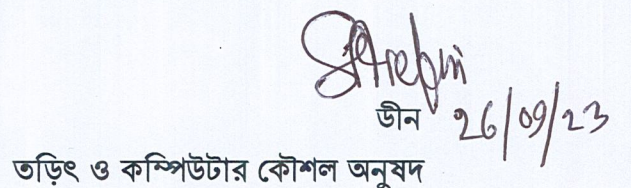 ডীন 26/09/23
তড়িৎ ও কম্পিউটার কৌশল অনুষদ